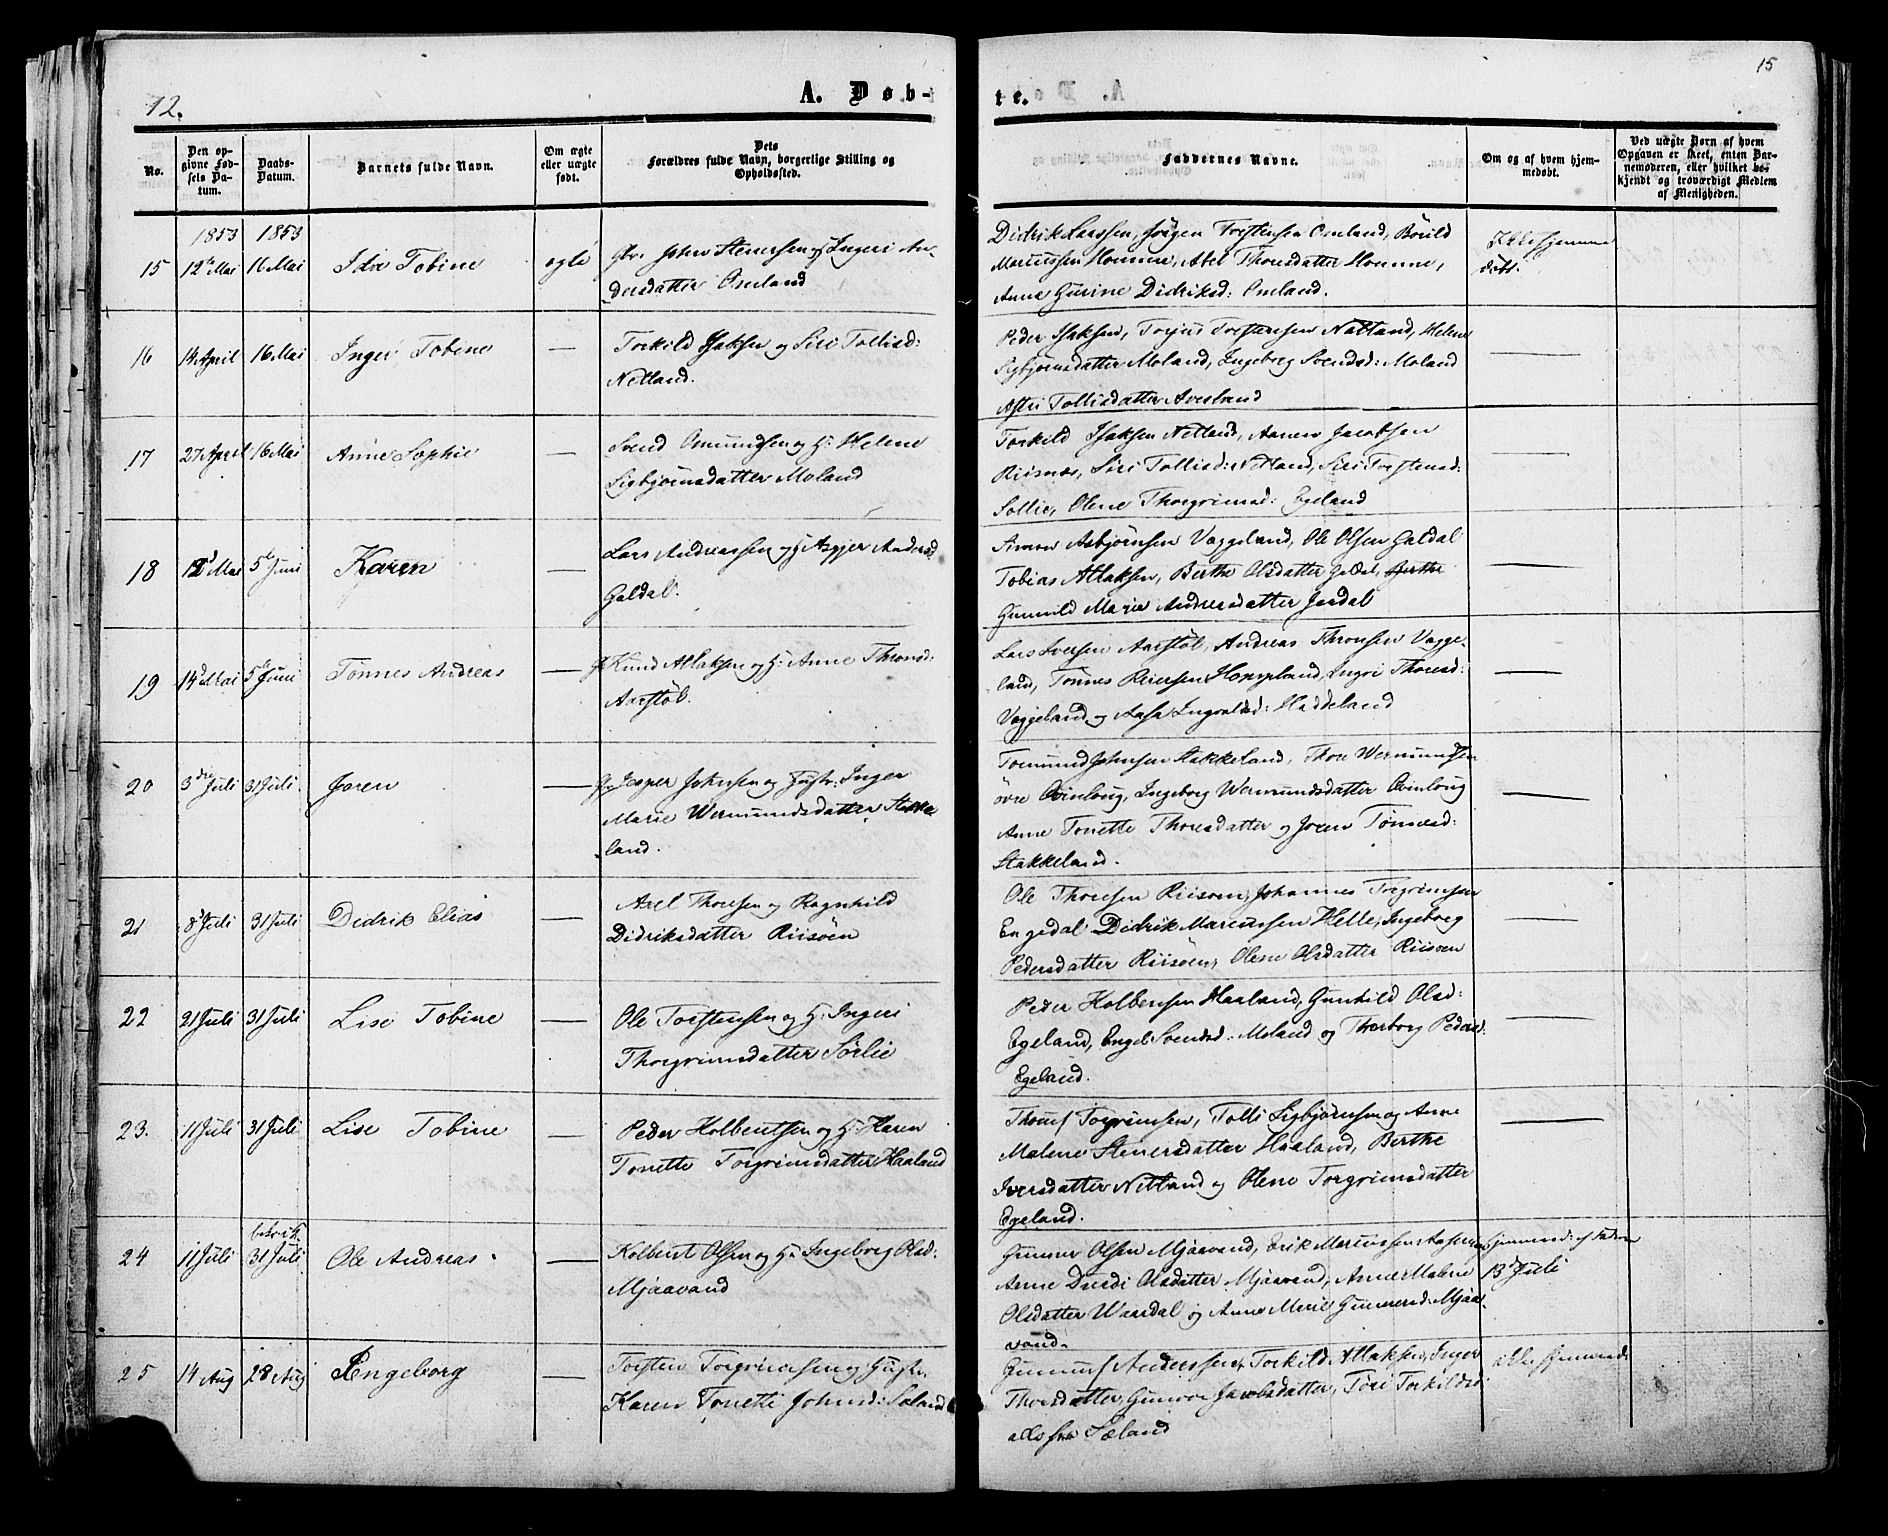 12.
A. Døb-
te.
15
No.
Den op-
givne Fød-
sels Da-
tum.
Daabs-
Datum.
Barnets fulde Navn.
Om ægte
eller uægte
født.
Dets
Forældres fulde Navn, borgerlige Stilling og
Opholdssted.
Faddernes Navne.
Om og af hvem hjem-
medøbt.
Ved uægte Børn af hvem
Opgaven er skeet, enten Bar-
nemoderen, eller hvilket be-
kjendt og troværdigt Medlem
af Menigheden.
1853 1853
15 12te Mai 16 Mai Ida Tobine ægte
John Stenersen og Ingeri An-
dersdatter Omland
Didrik Larssen, Jørgen Torstensen Omland, Børild
Marcussen Homme, Abel Thoresdatter Homme,
Anne Gurine Didriksd: Omland.
Ikke hjemme
døbt.
16 14 April 16 Mai Inger Tobine —
Torkild Isaksen og Siri Tollisd:
Netland.
Peder Isaksen, Torjus Torstensen Netland, Helene
Sigbjørnsdatter Moland, Ingeborg Svendsd: Moland
Astri Tollisdatter Avesland
17 27 April 16 Mai Anne Sophie —
Svend Omundsen og H: Helene
Sigbjørnsdatter Moland
Torkild Isaksen Netland, Aanen Jacobsen
Riisnes, Siri Tollisd: Netland, Siri Torstensd:
Sollie, Olene Thorgrimsd: Egeland
18 12 Mai 5te Juni Karen —
Lars Andreassen og H: Asgjer Andersd
Galdal.
Simon Asbjørnsen Vaggeland, Ole Olsen Galdal
Tobias Atlaksen, Berthe Olsdatter Galdal,
Gunnild Marie Andreasdatter
19 14d Mai 5te Juni Tønnes Andreas —
Knud Atlaksen og H: Anne Thronsd:
Aarstøl.
Lars Iversen Aarstøl, Andreas Thronsen Vagge-
land, Tønnes Reiersen Hompland, Ingri Thoresd:
Vaggeland og Aasa Ingvalsd: Haddeland
20 3die Juli 31 Juli. Joren —
Jesper Johnsen og Hustr: Inger
Marie Wermundsdatter Stakke
land.
Tormund Johnsen Stakkeland, Thore Wermundsen
øvre Qvinlaug, Ingeborg Wermundsdatter Qvinlaug
Anne Tonette Thoresdatter og Joren Tønnesd:
Stakkeland.
21 8d Juli 31 Juli Didrik Elias —
Axel Thoresen og Ragnhild
Didriksdatter Riisøen
Ole Thoresen Riisøen, Johannes Torgrimsen
Engedal Didrik Marcussen Helle, Ingeborg
Pedersdatter Riisøen, Olene Olsdatter Riisøen
22 21 Juli 31 Juli Lise Tobine —
Ole Torstensen og H: Ingeri
Thorgrimsdatter Sørlie
Peder Kolbensen Haaland, Gunhild Olsd:
Egeland, Engel Svendsd: Moland og Thorborg Pedersd.
Egeland.
23. 11 Juli 31 Juli Lise Tobine —
Peder Kolbentsen og H: Karen
Tonette Torgrimsdatter Haaland
Torgrimsen, Tolli Sigbjørnsen og Anne
Malene Stenersdatter Haaland, Berthe
Iversdatter Netland og Olene Torgrimsdatter
Egeland.
24 11 Juli 31 Juli Ole Andreas. —
Kolbent Olsen og H: Ingeborg Olsd:
Mjaavand
Gunner Olsen Mjaavand, Erik Marcussen
Anne Dorthea Olsdatter Mjaavand, Anne Malene
Olsdatter Waardal og Anne Marie Gunnersd: Mjaa-
vand.
Hjemmed: af Faderen
13d Juli
25 14 Aug 28 Aug Ingeborg —
Torsten Torgrimsen og Hustr.
Karen Tonette Johnsd: Sæland
Anderssen, Torkild Atlaksen, Inger
Thorsdatter, Gunvor Jacobsdatter, Tori Torkildsd:
alle fra Sæland
ikke hjemmed.